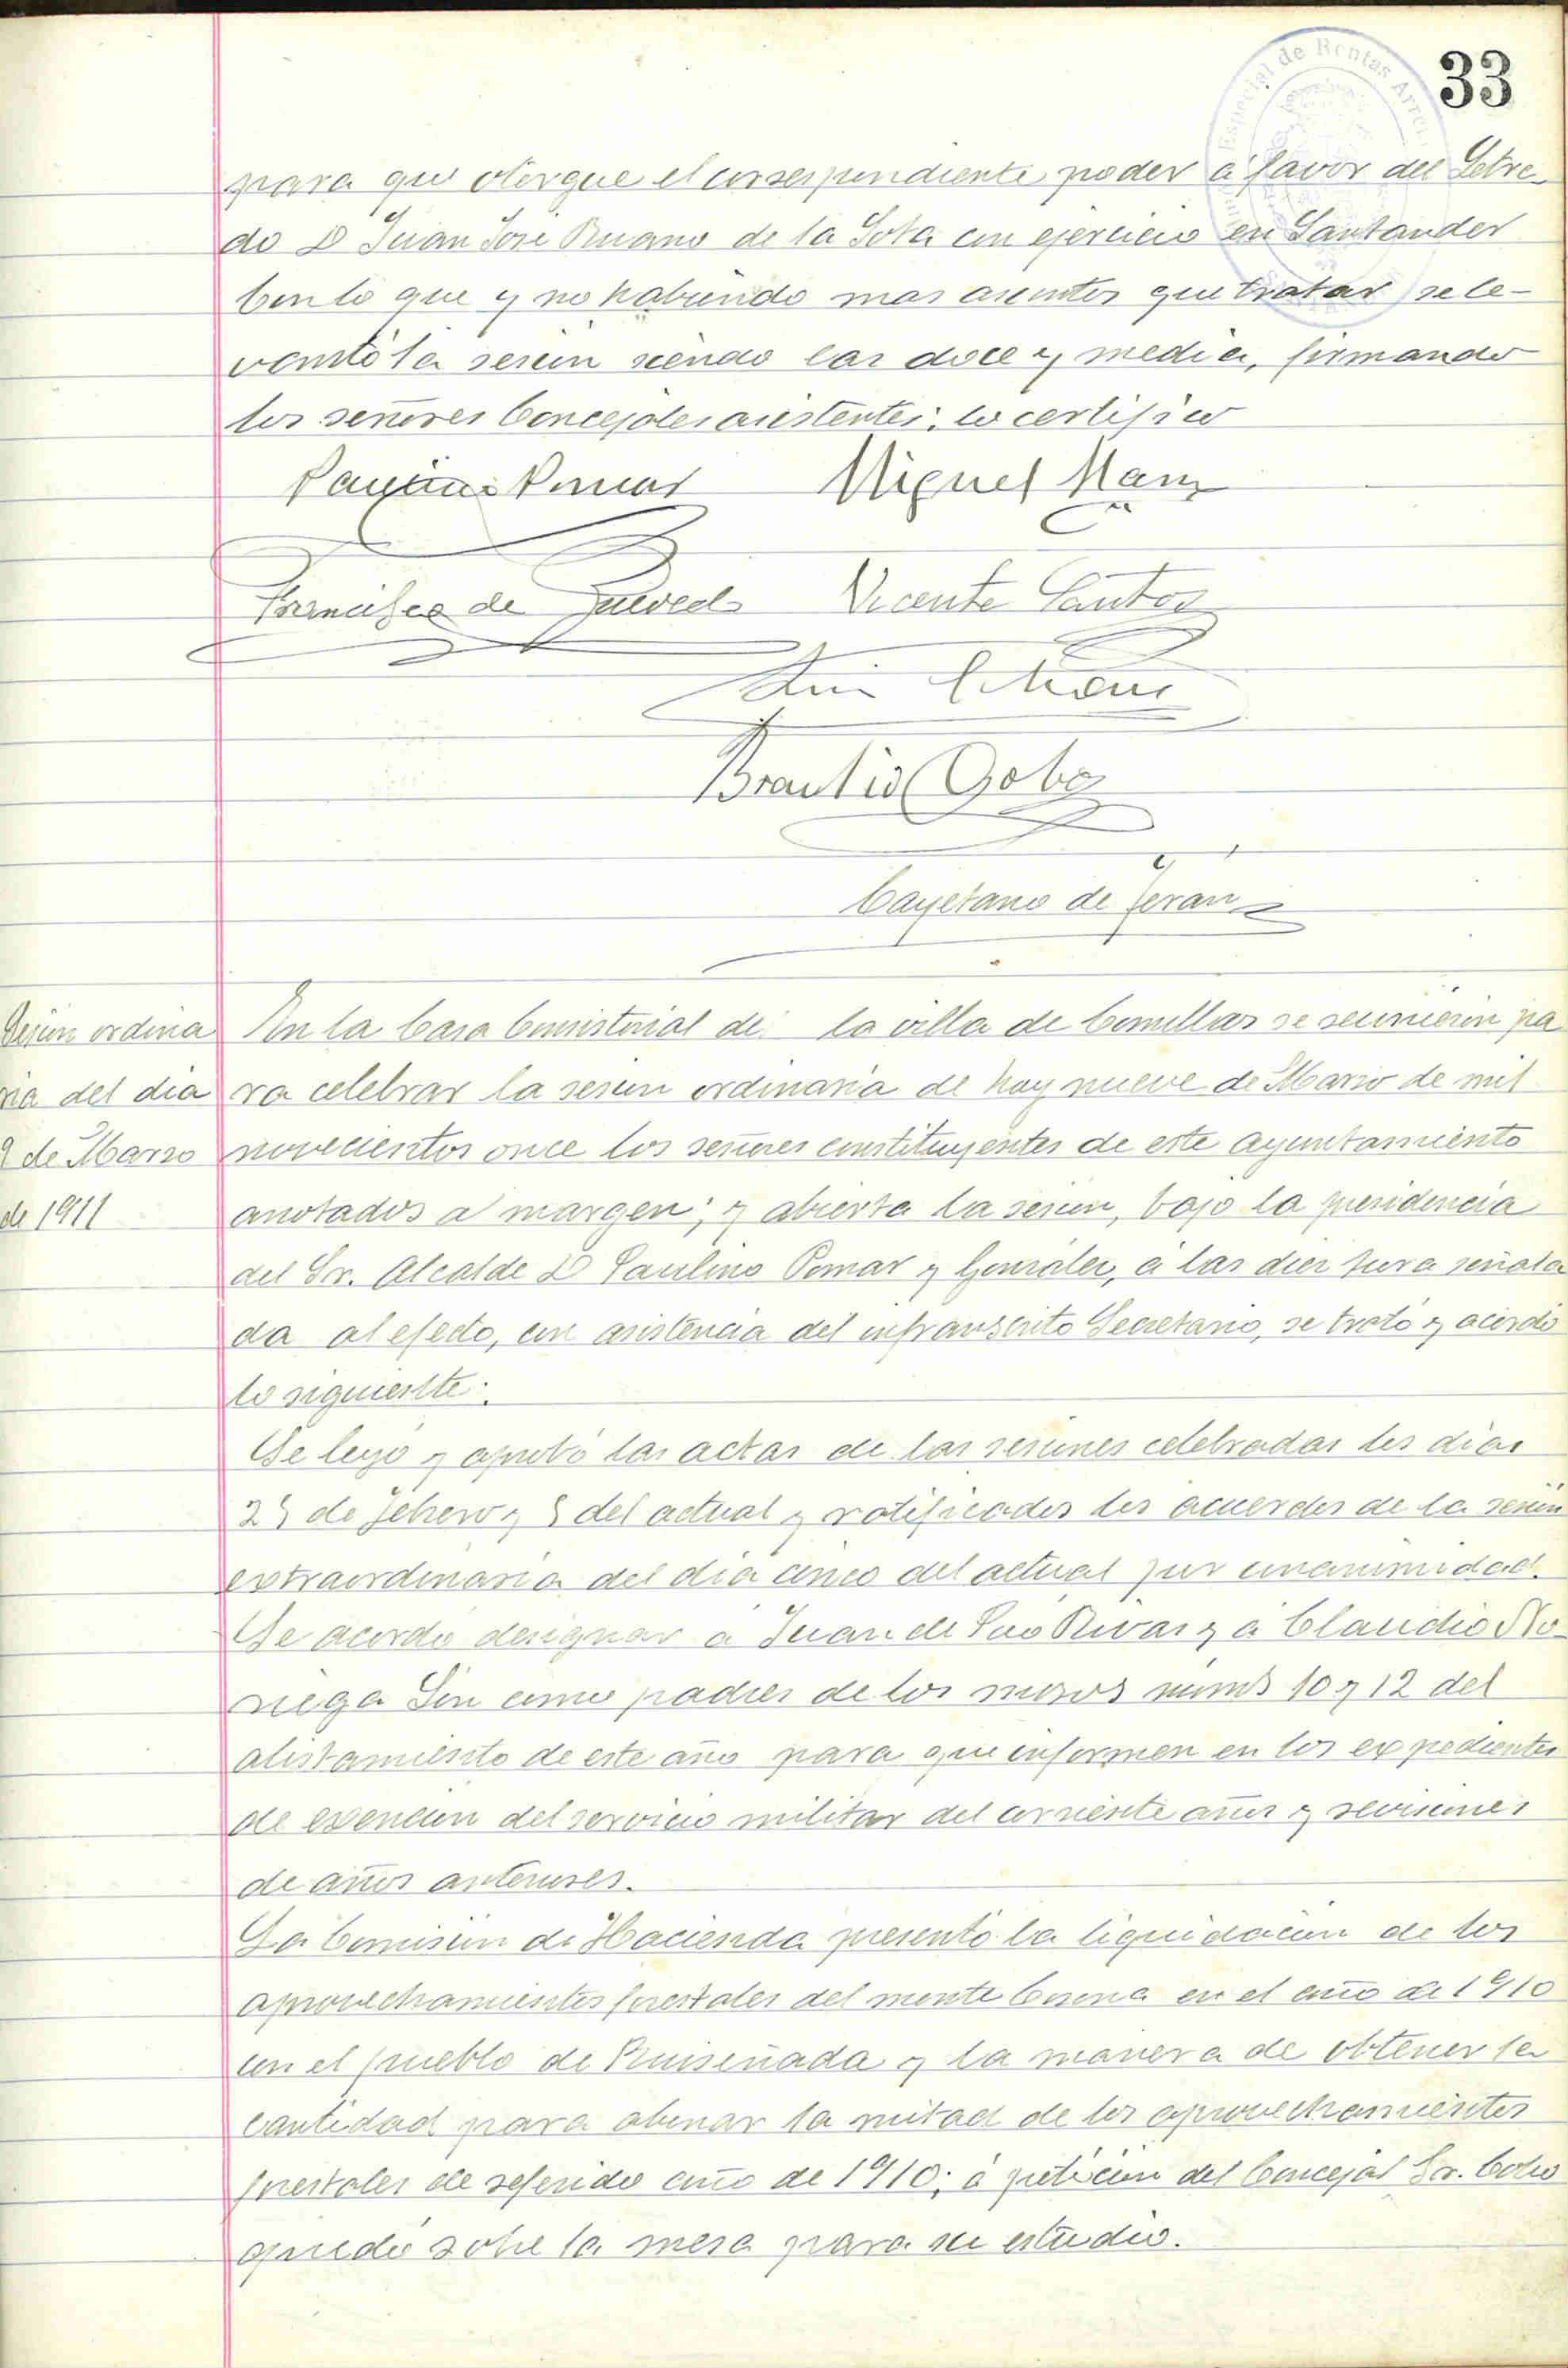 33
Especial de Rentas Arren
para que otorgue el correspondiente poder á favor del Letra-
do D Juan José Ruano de la Sota con ejercicio en Santander
Con lo que y no habiendo mas asuntos que tratar se le-
vantó la sesion siendo las doce y media, firmando
los señores Concejales asistentes; lo certifico
Paulino Pomar Miguel
Francisco de Vicente Santos
Braulio Cobo
Cayetano de Terán
Sesion ordina
ria del dia
9 de Marzo
de 1911
En la Casa Consistorial de la villa de Comillas se reunieron pa
ra celebrar la sesion ordinaria de hoy nueve de Marzo de mil
novecientos once los señores constituyentes de este ayuntamiento
anotados a margen; y abierta la sesion, bajo la presidencia
del Sr. Alcalde D Paulino Pomar y Gonzalez, á las diez hora señala
da al efecto, con asistencia del infrascrito Secretario, se trató y acordó
lo siguiente:
Se leyo y aprobó las actas de las sesiones celebradas los dias
de Febrero y 5 del actual y ratificados los acuerdos de la sesion
extraordinaria del dia cinco del actual por unanimidad.
Se acordó designar á Juan de Rivas y á Claudio No-
riega como padres de los mozos nums 10 y 12 del
alistamiento de este año para que informen en los expedientes
de exencion del servicio militar del corriente año y revisiones
de años anteriores.
La Comision de Hacienda presentó la liquidacion de los
aprovechamientos forestales del monte Corona en el año de 1910
con el pueblo de Ruiseñada y la manera de obtener la
cantidad para abonar la mitad de los aprovechamientos
forestales de referido año de 1910; á peticion del Concejal Sr. Cobo
quedó sobre la mesa para su estudio.